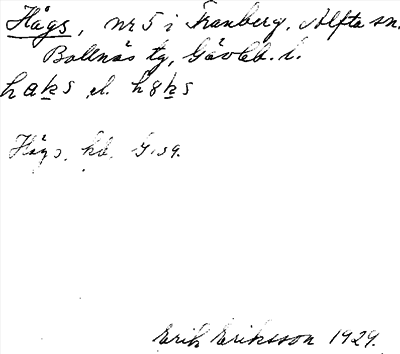 Hågs, nr 5 i Tranberg, Alfta sn.
Bollnäs tg, Gävleb. l.
haks el. h8ks
Hågs, hd.
Erik Eriksson 1929.